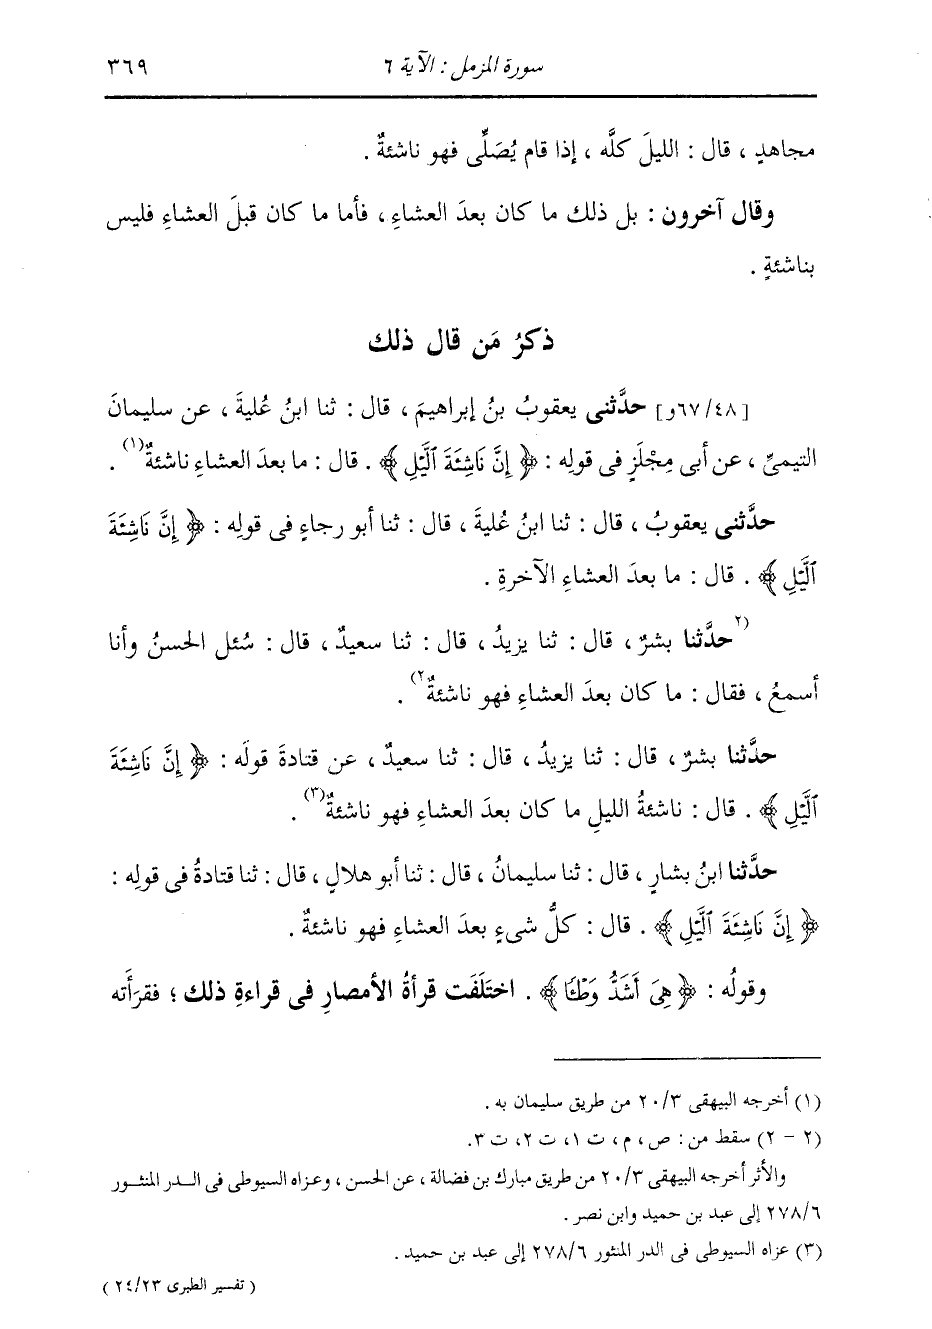 سورة المزمل : الآية ٦
٣٦٩
مجاهدٍ ، قال : الليلَ كلَّه ، إذا قام يُصَلِّى فهو ناشئةٌ .
وقال آخرون : بل ذلك ما كان بعدَ العشاءِ ، فأما ما كان قبلَ العشاءِ فليس
بناشئةٍ .
ذكرُ مَن قال ذلك
[٦٧/٤٨و] حدَّثنى يعقوبُ بنُ إبراهيمَ ، قال : ثنا ابنُ عُليةَ ، عن سليمانَ
التيمىِّ ، عن أبى مِجْلَزٍ فى قولِه : ﴿ إِنَّ نَاشِئَةَ ٱلَّيْلِ ﴾ . قال : ما بعدَ العشاءِ ناشئةٌ(١) .
حدَّثنى يعقوبُ ، قال : ثنا ابنُ عُليةَ ، قال : ثنا أبو رجاءٍ فى قولِه : ﴿ إِنَّ نَاشِئَةَ
ٱلَّيْلِ ﴾ . قال : ما بعدَ العشاءِ الآخرةِ .
(٢حدَّثنا بشرٌ ، قال : ثنا يزيدُ ، قال : ثنا سعيدٌ ، قال : سُئل الحسنُ وأنا
أسمعُ ، فقال : ما كان بعدَ العشاءِ فهو ناشئةٌ٢) .
حدَّثنا بشرٌ ، قال : ثنا يزيدُ ، قال : ثنا سعيدٌ ، عن قتادةَ قولَه : ﴿ إِنَّ نَاشِئَةَ
ٱلَّيْلِ ﴾ . قال : ناشئةُ الليلِ ما كان بعدَ العشاءِ فهو ناشئةٌ(٣) .
حدَّثنا ابنُ بشارٍ ، قال : ثنا سليمانُ ، قال : ثنا أبو هلالٍ ، قال : ثنا قتادةُ فى قولِه :
﴿ إِنَّ نَاشِئَةَ ٱلَّيْلِ ﴾ . قال : كلُّ شىءٍ بعدَ العشاءِ فهو ناشئةٌ .
وقولُه : ﴿ هِىَ أَشَدُّ وَطْـًٔا ﴾ . اختَلَفَت قرأةُ الأمصارِ فى قراءةِ ذلك ؛ فقرَأَته
(١) أخرجه البيهقى ٢٠/٣ من طريق سليمان به .
(٢ - ٢) سقط من : ص ، م ، ت ١، ت ٢، ت ٣.
والأثر أخرجه البيهقى ٢٠/٣ من طريق مبارك بن فضالة ، عن الحسن ، وعزاه السيوطى فى الدر المنثور
٢٧٨/٦ إلى عبد بن حميد وابن نصر .
(٣) عزاه السيوطى فى الدر المنثور ٢٧٨/٦ إلى عبد بن حميد .
( تفسير الطبرى ٢٤/٢٣ )